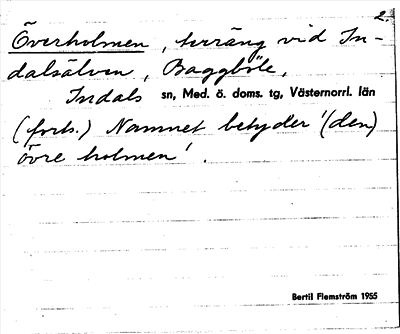 2.
Överholmen, terräng vid In-
dalsälven, Baggböle,
Indals sn, Med. ö. doms. tg, Västernorrl. län
(forts.) Namnet betyder '(den)
övre holmen'.
Bertil Flemström 1955